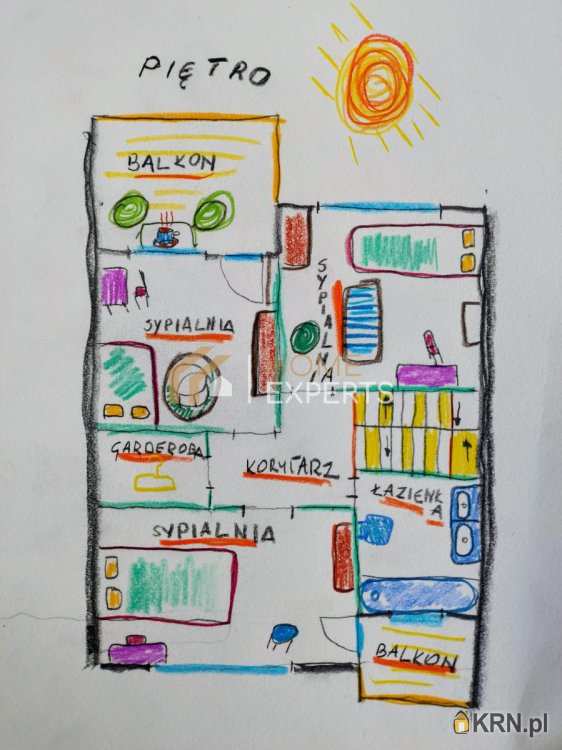 PIĘTRO
BALKON
SYPIALNIA
SYPIALNIA
HOME
EXPERTS
GARDEROBA
KORYTARZ
ŁAZIENKA
SYPIALNIA
BALKON
KRN.pl